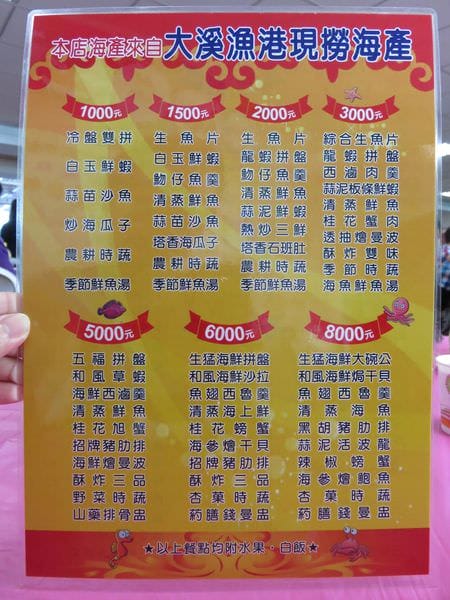 本店海產來自大溪漁港現撈海產
1000元
冷盤雙拼
白玉鮮蝦
蒜苗沙魚
炒海瓜子
農耕時蔬
季節鮮魚湯
1500元
生魚片
白玉鮮蝦
魩仔魚羹
清蒸鮮魚
蒜苗沙魚
塔香海瓜子
農耕時蔬
季節鮮魚湯
2000元
生魚片
龍蝦拼盤
魩仔魚羹
清蒸鮮魚
蒜泥鮮蝦
熱炒三鮮
塔香石斑肚
農耕時蔬
季節鮮魚湯
3000元
綜合生魚片
龍蝦拼盤
西滷肉羹
蒜泥板條鮮蝦
清蒸鮮魚
桂花蟹肉
透抽燴曼波
酥炸雙味
季節時蔬
海魚鮮魚湯
5000元
五福拼盤
和風草蝦
海鮮西滷羹
清蒸鮮魚
桂花旭蟹
招牌豬肋排
海鮮燴曼波
酥炸三品
野菜時蔬
山藥排骨盅
6000元
生猛海鮮拼盤
和風海鮮沙拉
魚翅西魯羹
清蒸海上鮮
桂花螃蟹
海參燴干貝
招牌豬肋排
酥炸三品
杏菜時蔬
葯膳錢曼盅
8000元
生猛海鮮大碗公
和風海鮮焗干貝
魚翅西魯羹
清蒸海魚
黑胡豬肋排
蒜泥活波龍
辣椒螃蟹
海參燴鮑魚
杏菜時蔬
葯膳錢曼盅
★以上餐點均附水果、白飯★